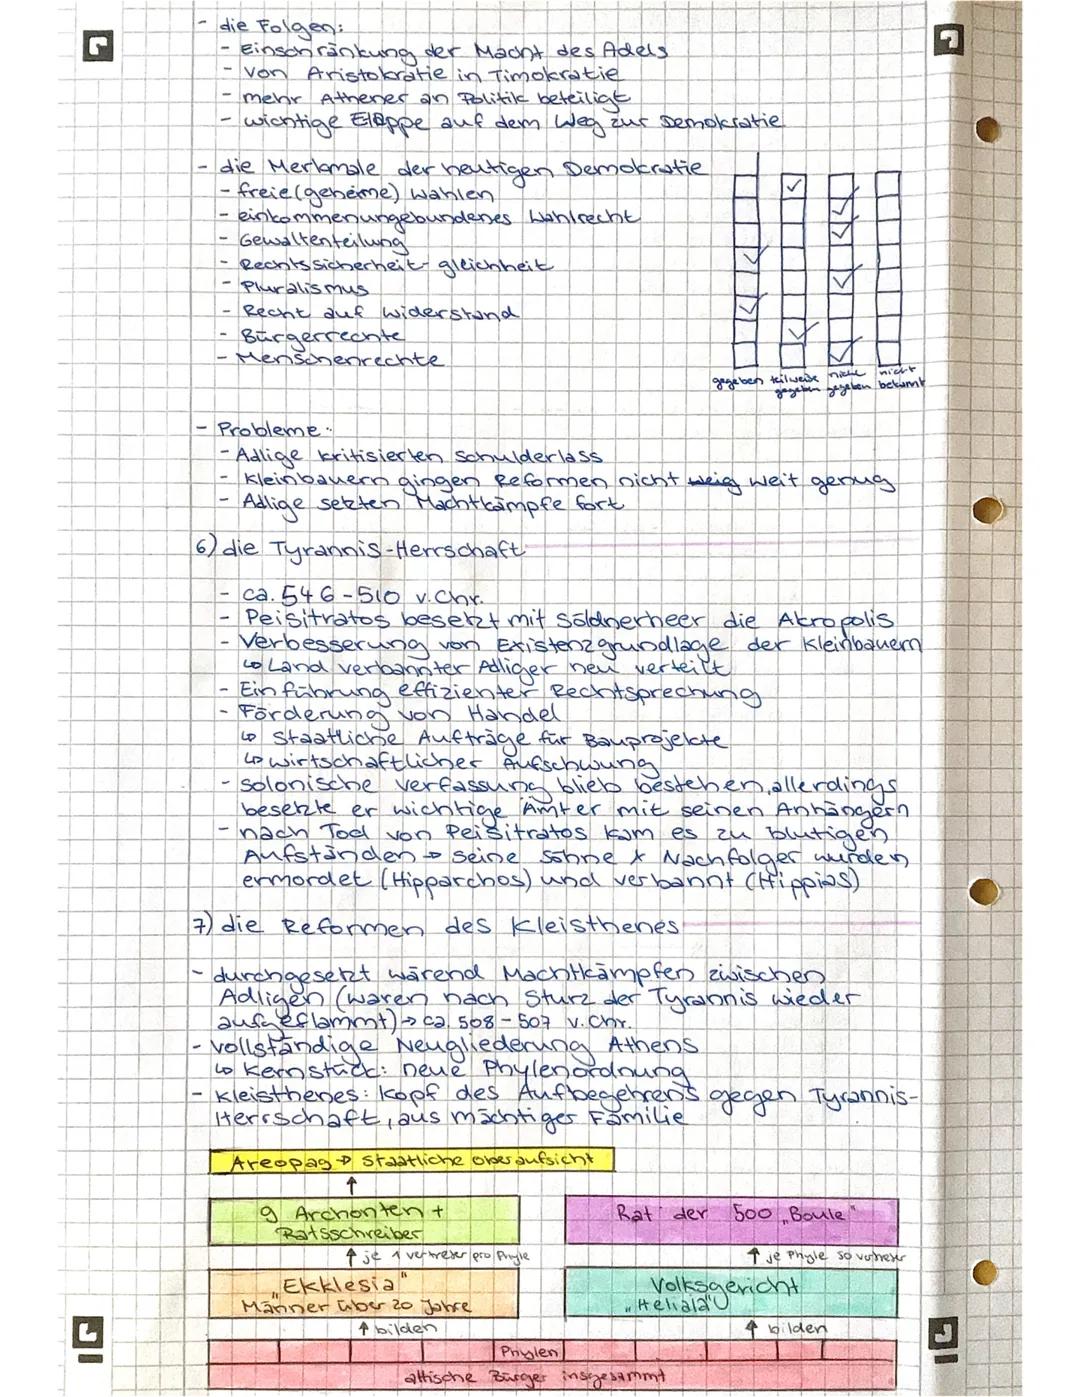 - die Folgen:
- Einschränkung der Macht des Adels
- von Aristokratie in Timokratie
- mehr Athener an Politik beteiligt
- wichtige Etappe auf dem Weg zur Demokratie
- die Merkmale der heutigen Demokratie
- freie (geheime) Wahlen
- einkommenungebundenes Wahlrecht
- Gewaltenteilung
- Rechtssicherheit - gleichheit
- Pluralismus
- Recht auf Widerstand
- Bürgerrechte
- Menschenrechte
gegeben teilweise gegeben nicht gegeben nicht bekannt
- Probleme:
- Adlige kritisierten Schulderlass
- Kleinbauern gingen Reformen nicht weig weit genug
- Adlige setzten Machtkämpfe fort
6) die Tyrannis-Herrschaft
- ca. 546-510 v. Chr.
- Peisitratos besetzt mit Söldnerheer die Akropolis
- Verbesserung von Existenzgrundlage der Kleinbauern
↳ Land verbannter Adliger neu verteilt
- Einführung effizienter Rechtsprechung
- Förderung von Handel
↳ Staatliche Aufträge für Bauprojekte
↳ wirtschaftlicher Aufschwung
- solonische Verfassung blieb bestehen, allerdings
besetzte er wichtige Ämter mit seinen Anhängern
- nach Tod von Peisitratos kam es zu blutigen
Aufständen → seine Söhne + Nachfolger wurden
ermordet (Hipparchos) und verbannt (Hippias)
7) die Reformen des Kleisthenes
- durchgesetzt wärend Machtkämpfen zwischen
Adligen (waren nach Sturz der Tyrannis wieder
aufgeflammt) → ca. 508-507 v. Chr.
- vollständige Neugliederung Athens
↳ Kernstück: neue Phylenordnung
- Kleisthenes: Kopf des Aufbegehrens gegen Tyrannis-
Herrschaft, aus mächtiger Familie
Areopag → staatliche Oberaufsicht
↑
9 Archonten +
Ratsschreiber
Rat der 500 „Boule"
↑ je 1 vertreter pro Phyle
↑ je Phyle 50 vertreter
„Ekklesia"
Männer über 20 Jahre
Volksgericht
„Heliaia"
↑ bilden
↑ bilden
Phylen
attische Bürger insgesammt